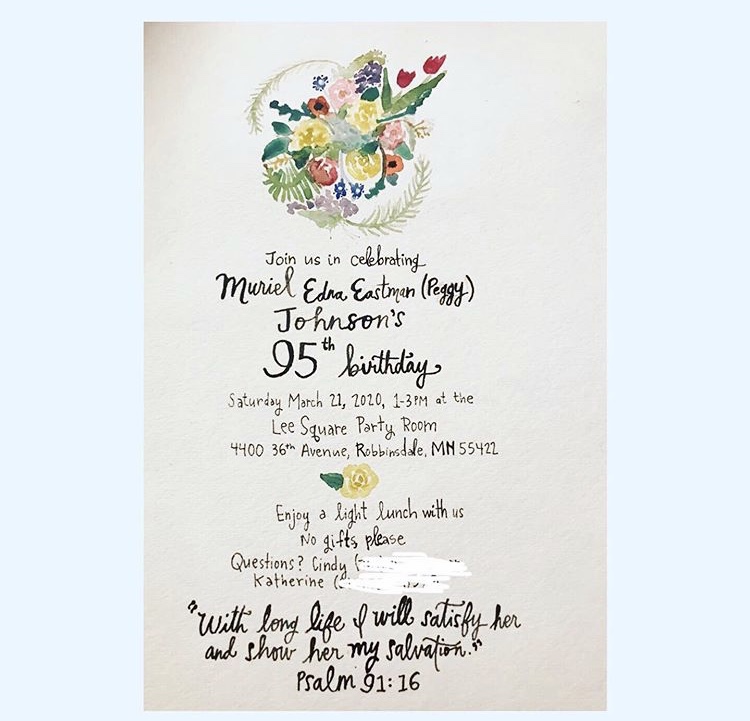 Join us in celebrating
Muriel Edna Eastman (Peggy)
Johnson's
95th birthday
Saturday March 21, 2020, 1-3PM at the
Lee Square Party Room
4400 36th Avenue, Robbinsdale, MN 55422
Enjoy a light lunch with us
No gifts, please
Questions? Cindy (
Katherine (
"With long life I will satisfy her
and show her my salvation."
Psalm 91:16